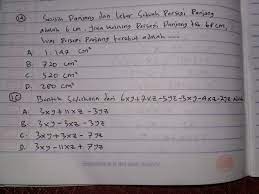 14) Selisih Panjang dan Lebar Sebuah Persegi Panjang
adalah 6 cm, jika keliling Persegi Panjang tsb 68 cm,
luas Persegi Panjang tersebut adalah .....
A. 1.147 cm²
B. 720 cm²
C. 520 cm²
D. 280 cm²
15) Bentuk Sederhana dari 6xy+7xz-5yz-3xy-4xz-2yz adalah
A. 3xy+11xz-3yz
B. 3xy-3xz-3yz
C. 3xy+3xz-7yz
D. 3xy-11xz+7yz